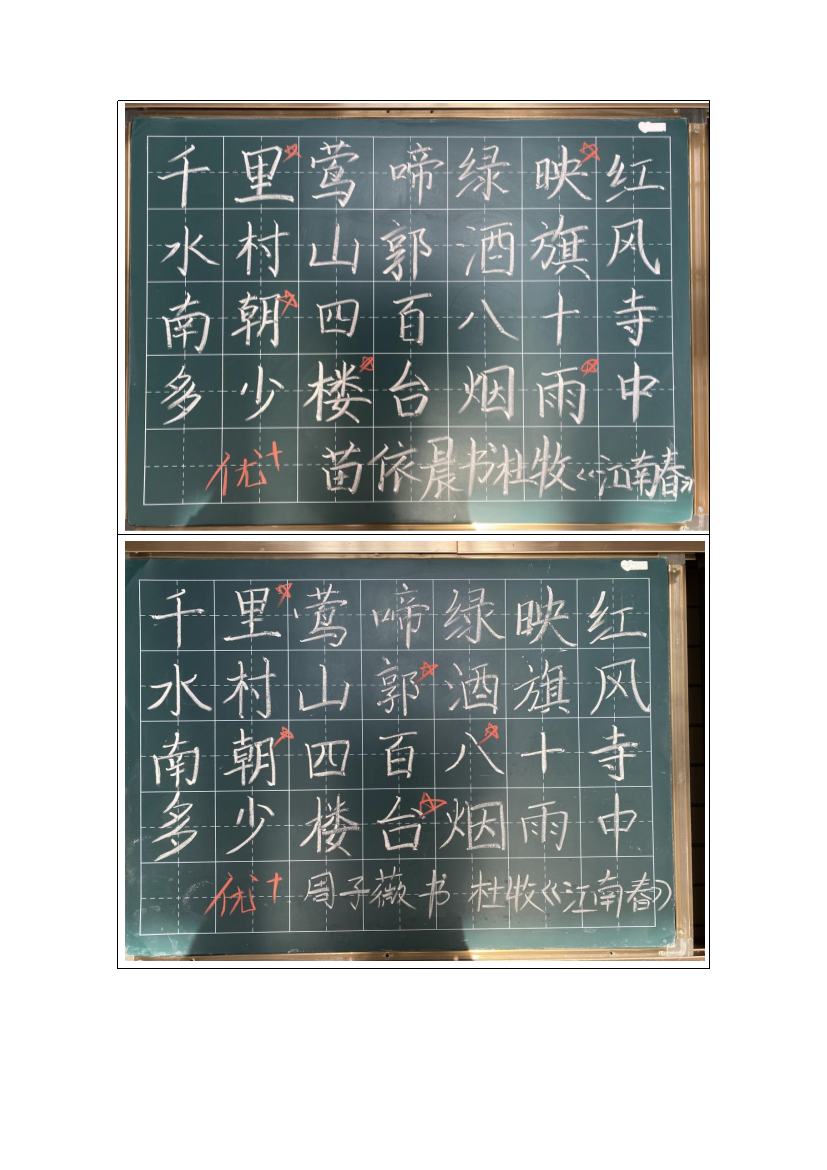 千里莺啼绿映红
水村山郭酒旗风
南朝四百八十寺
多少楼台烟雨中
优+ 苗依晨书杜牧《江南春》
千里莺啼绿映红
水村山郭酒旗风
南朝四百八十寺
多少楼台烟雨中
优+ 周子薇书 杜牧《江南春》